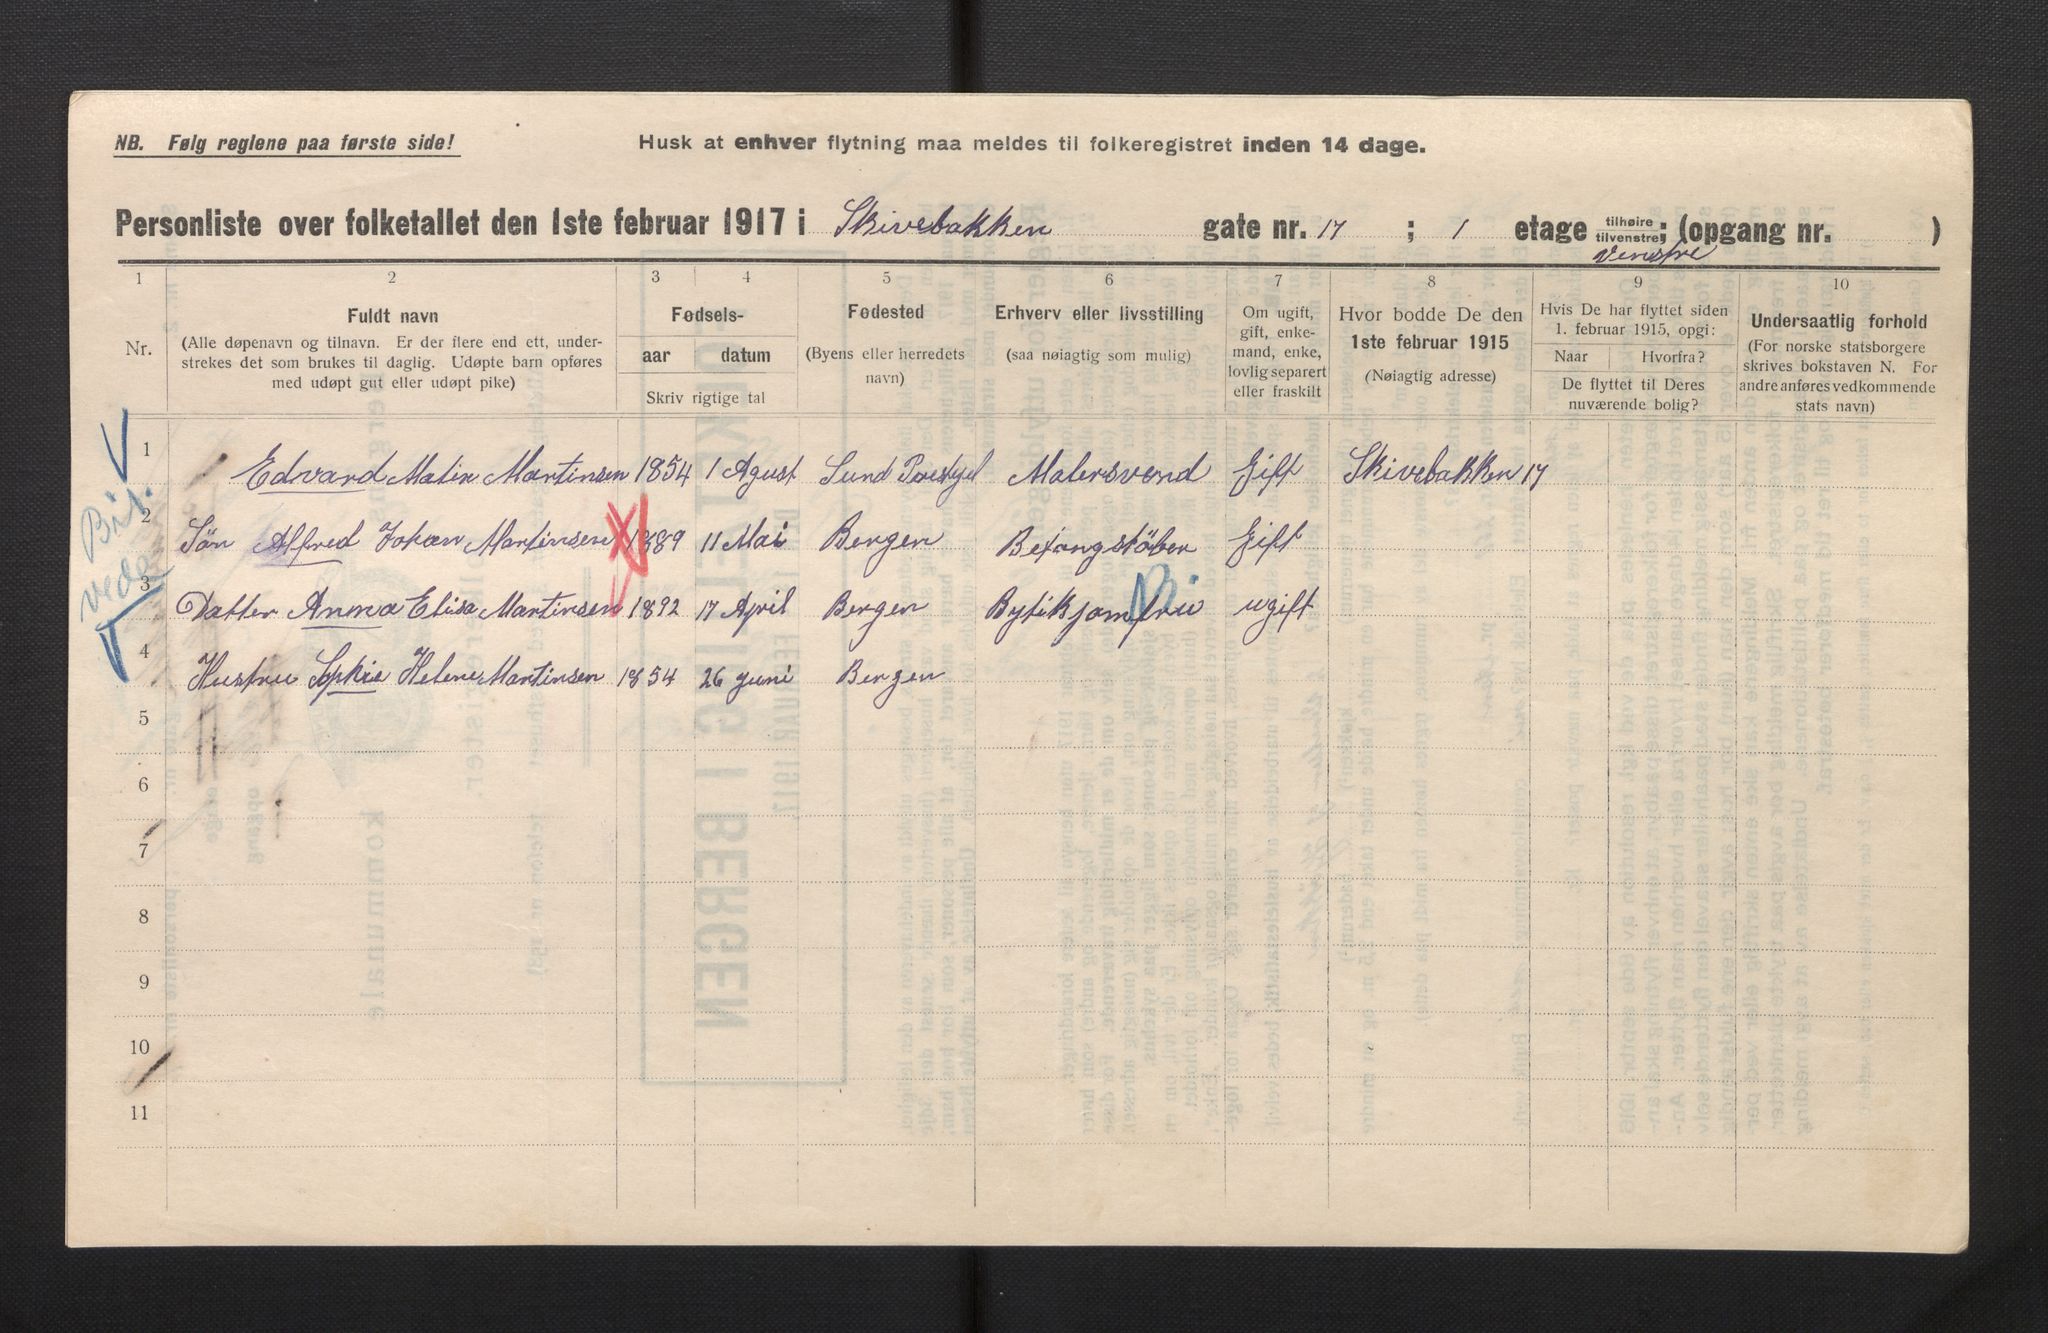 NB. Følg reglene paa første side!
Husk at enhver flytning maa meldes til folkeregistret inden 14 dage.
Personliste over folketallet den 1ste februar 1917 i Skivebakken gate nr. 17 ; 1 etage tilhøire tilvenstre ; (opgang nr. )
Venstre
1 2 3 4 5 6 7 8 9 10
Nr.
Fuldt navn
(Alle døpenavn og tilnavn. Er der flere end ett, under-
strekes det som brukes til daglig. Udøpte barn opføres
med udøpt gut eller udøpt pike)
Fødsels-
aar datum
Skriv rigtige tal
Fødested
(Byens eller herredets
navn)
Erhverv eller livsstilling
(saa nøiagtig som mulig)
Om ugift,
gift, enke-
mand, enke,
lovlig separert
eller fraskilt
Hvor bodde De den
1ste februar 1915
(Nøiagtig adresse)
Hvis De har flyttet siden
1. februar 1915, opgi:
Naar Hvorfra?
De flyttet til Deres
nuværende bolig?
Undersaatlig forhold
(For norske statsborgere
skrives bokstaven N. For
andre anføres vedkommende
stats navn)
1 Edvard Matin Martinsen 1854 1 Agust Sund Præstgjel Malersvend Gift Skivebakken 17
2 Sön Alfred Johan Martinsen 1889 11 Mai Bergen Betongstöber Gift
3 Datter Anna Elisa Martinsen 1892 17 April Bergen Bytikjomfru ugift
4 Hustru Sophie Helene Martinsen 1854 26 juni Bergen
5
6
7
8
9
10
11